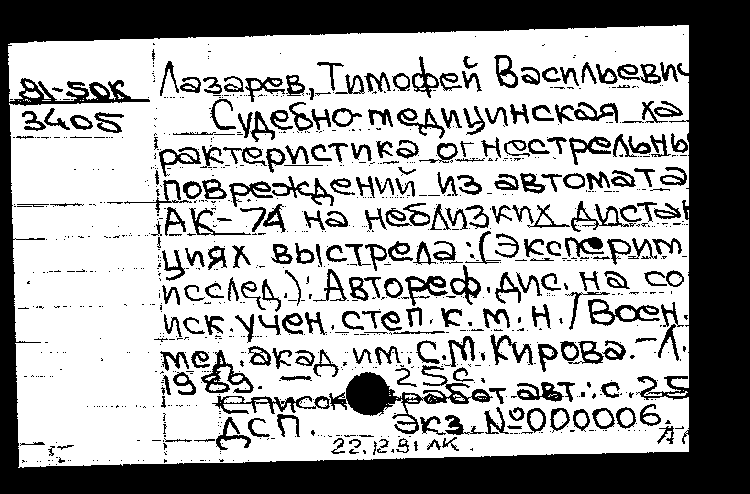 91-50К
3405
Лазарев, Тимофей Васильевич
Судебно-медицинская ха
рактеристика огнестрельны
повреждений из автомата
АК-74 на неблизких дистан
циях выстрела: (Эксперим
исслед.): Автореф. дис. на со
иск. учен. степ. к. м. н. / Воен.
мед. акад. им. С.М. Кирова. - Л.
1989. — 25 с.
Список работ авт.: с. 25
ДСП. Экз. №000006.
22.12.91 ЛК.